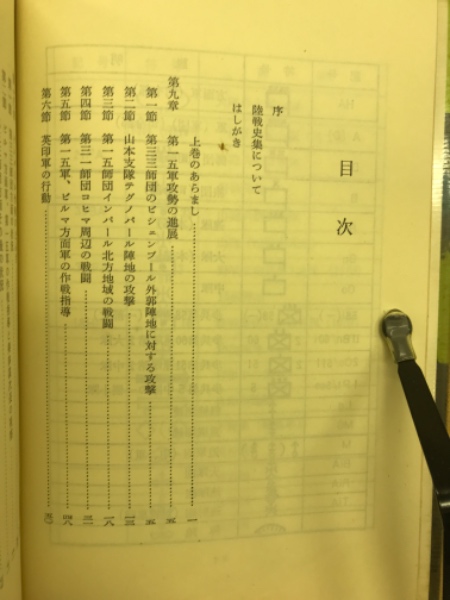 目次
序
陸戦史集について
はしがき
上巻のあらまし……一
第九章 第一五軍攻勢の進展……五
第一節 第三三師団のビシェンプール外郭陣地に対する攻撃……五
第二節 山本支隊テグノパール陣地の攻撃……一三
第三節 第一五師団インパール北方地域の戦闘……一八
第四節 第三一師団コヒマ周辺の戦闘……三一
第五節 第一五軍、ビルマ方面軍の作戦指導……四八
第六節 英印軍の行動……